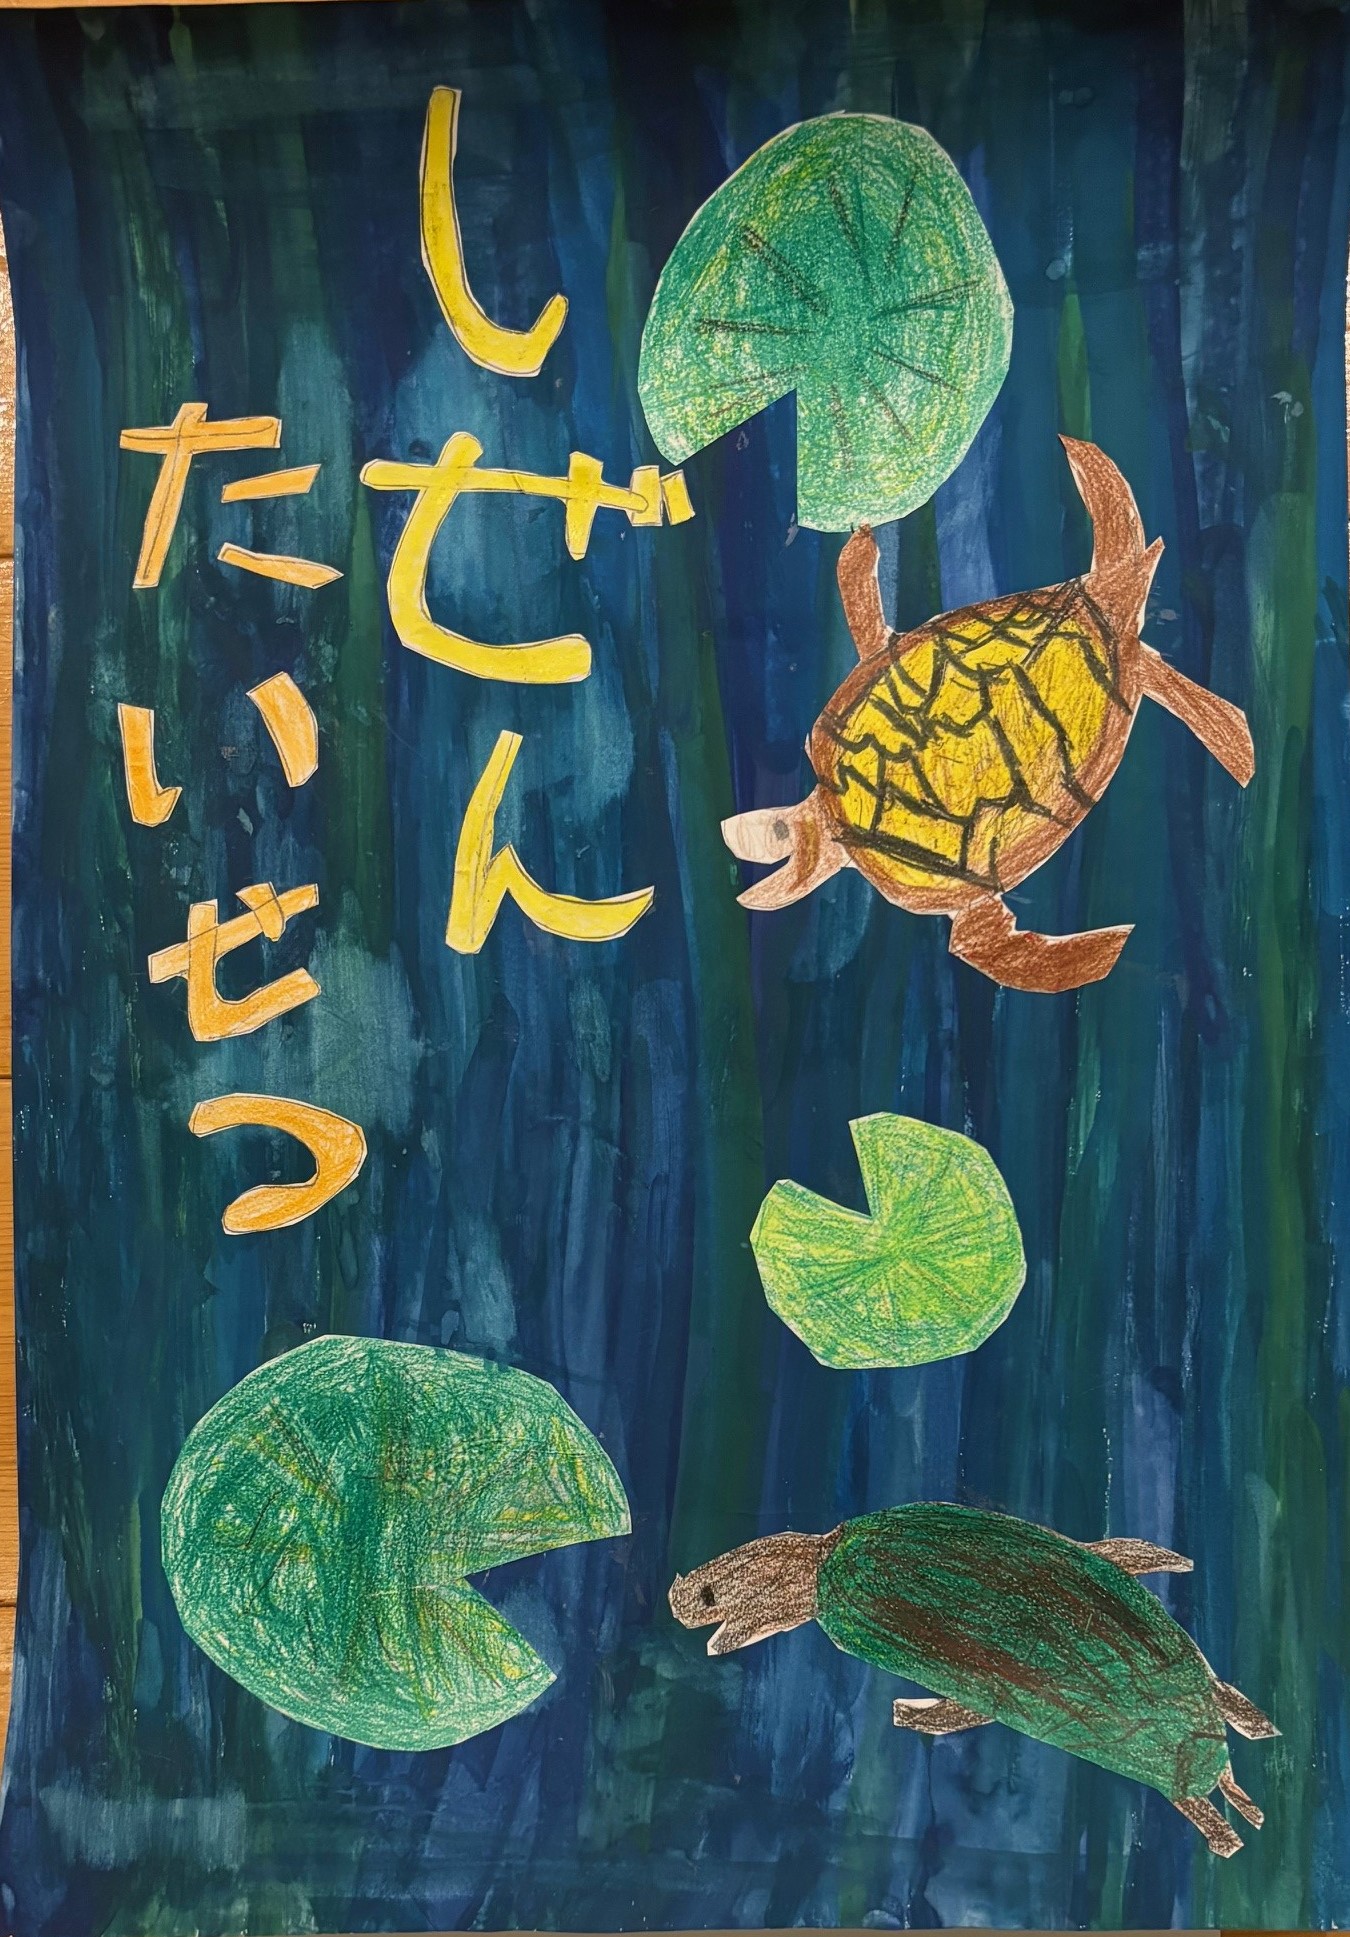 しぜん
たいせつ